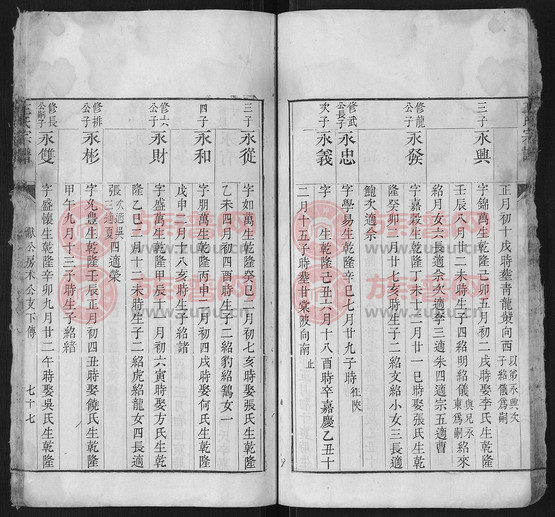 正月初十戌時葬青龍嘴向西 以弟永興次子紹儀爲嗣
三子 永興 字錦萬生乾隆己卯五月初二戌時娶李氏生乾隆
壬辰八月廿二未時生子四紹明紹儀 與兄永東爲嗣 紹來
紹月女六長適余次適李三適朱四適宗五適曹
修龍公子 永發 字嘉毅生乾隆丁未十二月廿一巳時娶張氏生乾
隆癸卯 月廿七亥時生子二紹文紹小女三長適
鮑次適余
修武公長子 永忠 字學易生乾隆辛巳七月廿九子時 往陝
次子 永義 字 生乾隆己丑六月十八酉時辛嘉慶乙丑十
二月十五子時葬甘棠陂向南 止
三子 永從 字如萬生乾隆癸巳二月初七亥時娶張氏生乾隆
乙未四月初四酉時生子二紹豹紹鶴女一
四子 永和 字朋萬生乾隆丙申二月初四戌時娶何氏生乾隆
戊申二月十八亥時生子紹諸
修六公子 永財 字盛萬生乾隆甲辰十二月初六寅時娶方氏生乾
隆乙巳二月十二未時生子二紹虎紹龍女四長適
張 次適吳三適夏 四適榮
修排公子 永彬 字允豐生乾隆壬辰正月初四丑時娶饒氏生乾隆
甲午九月十三子時生子紹結
修長公嗣子 永雙 字盛懷生乾隆辛卯九月廿二午時娶吳氏生乾隆
氏宗譜
獻公房木公支下傳
七十七
族譜網
www.zupu.cn